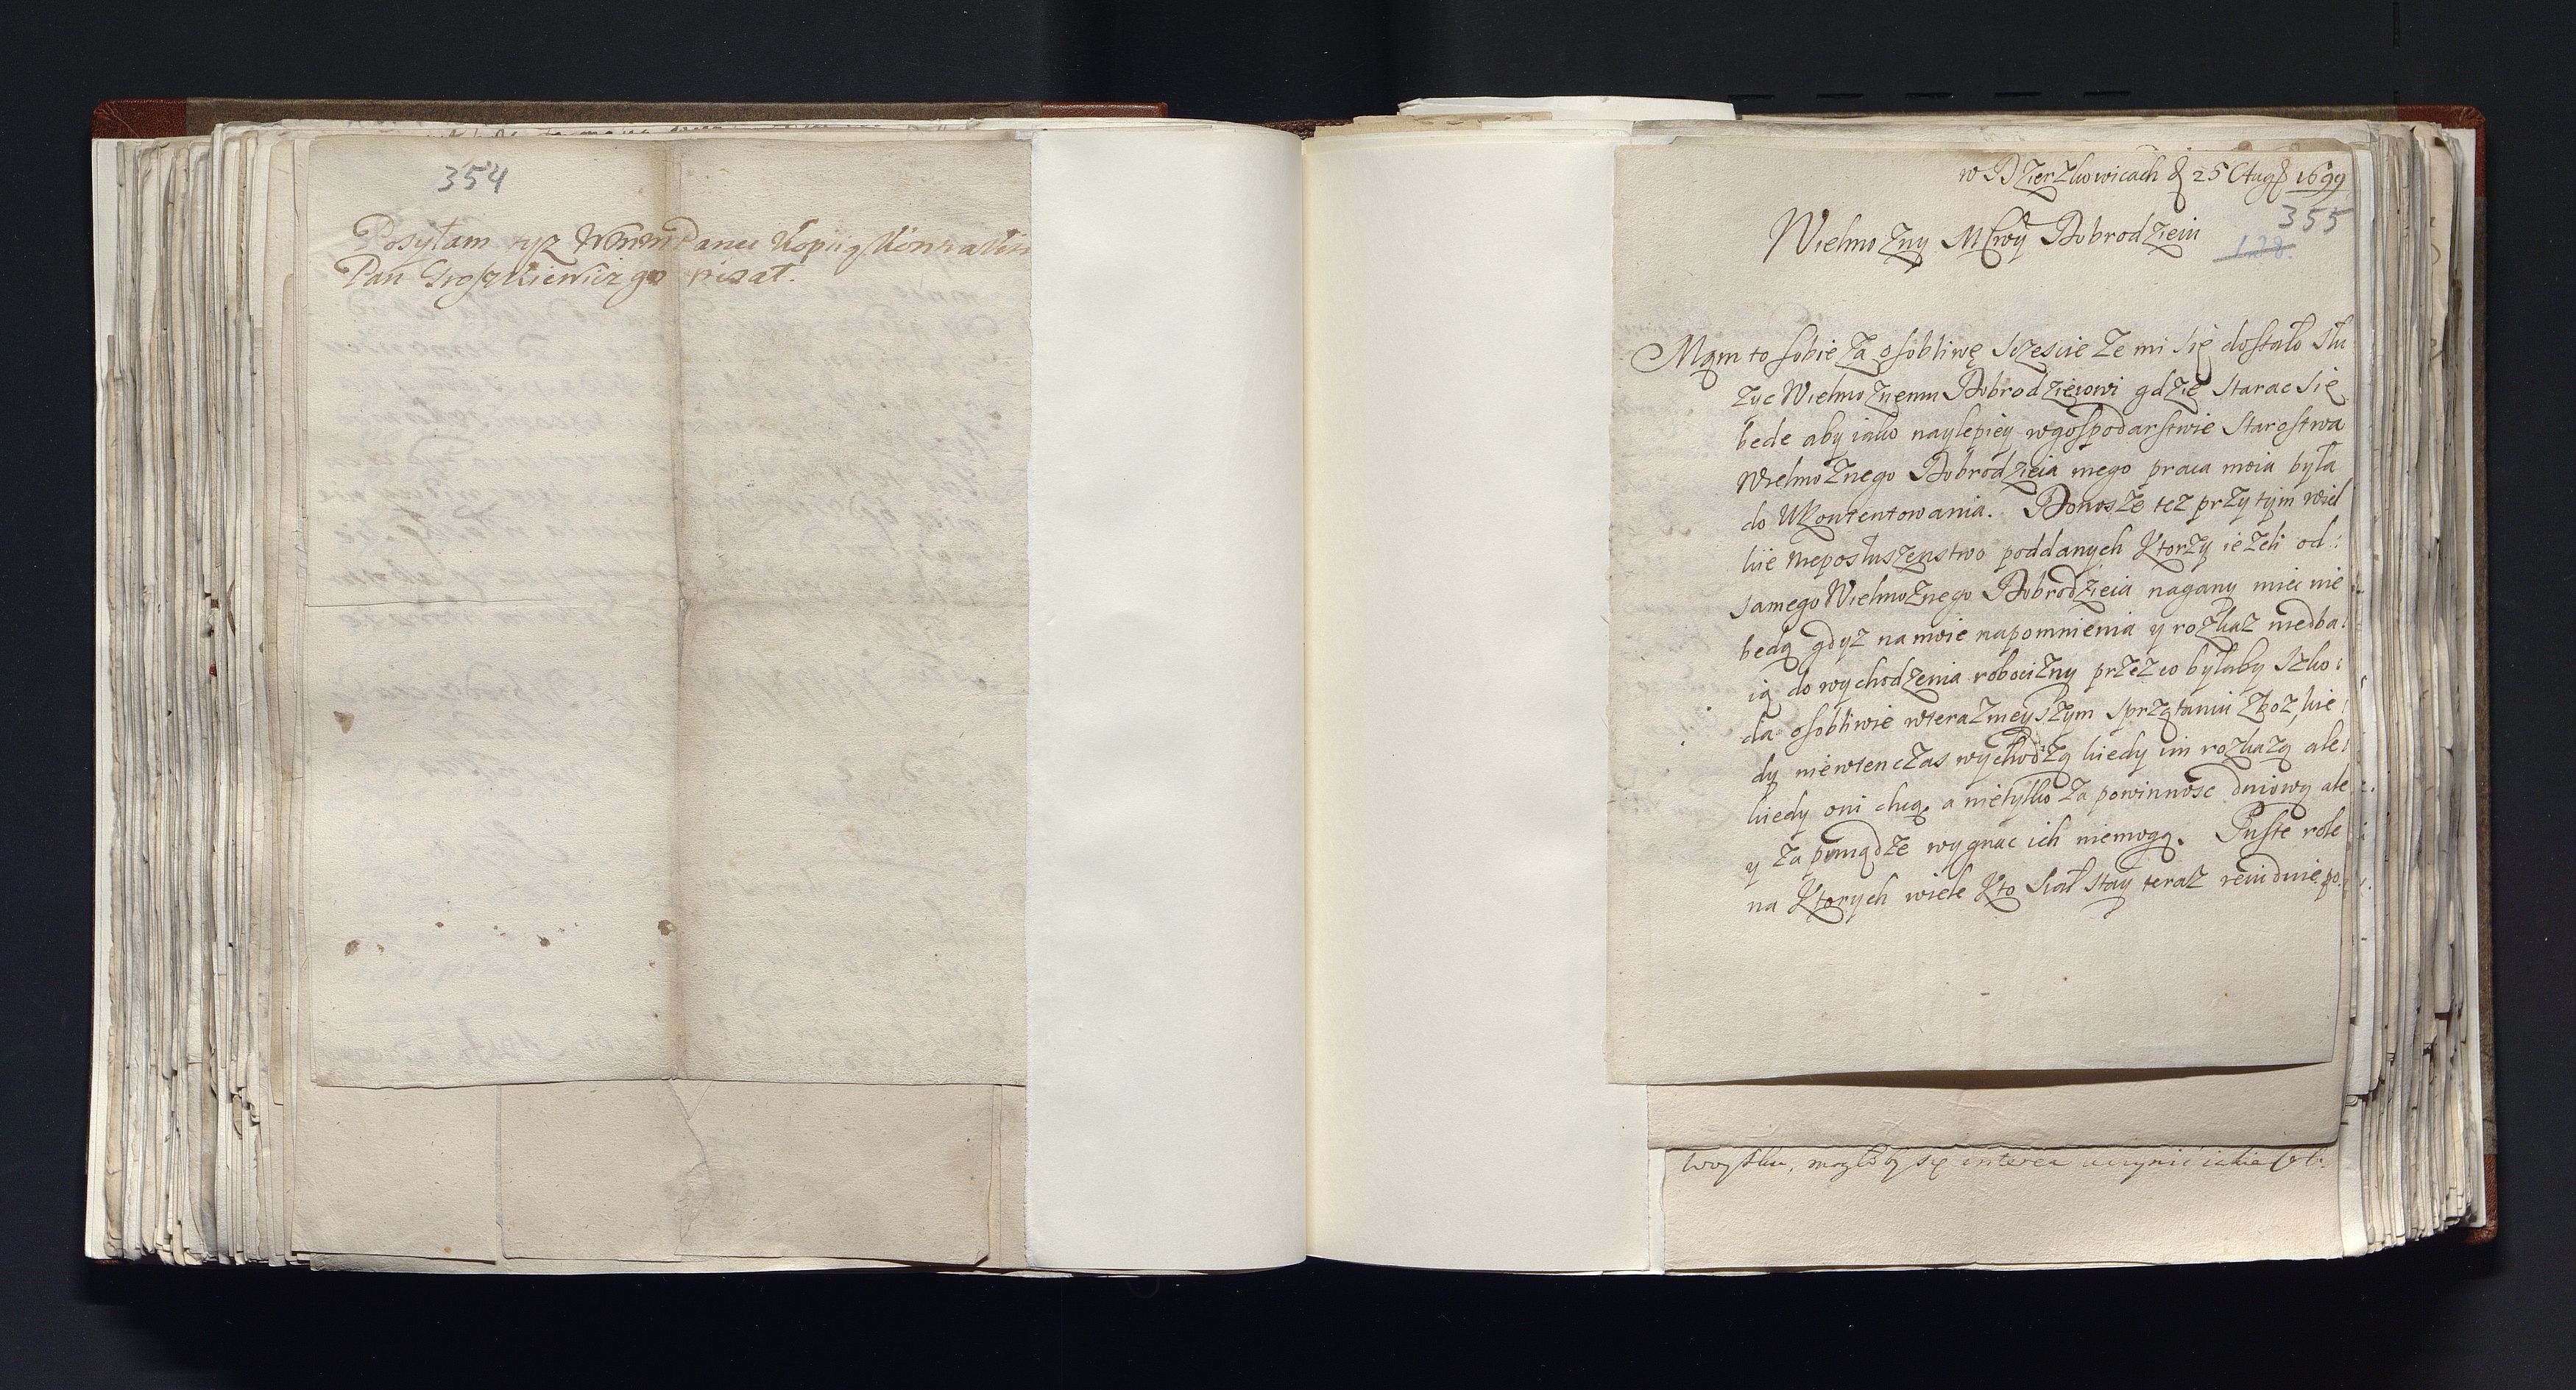 354
Posyłam tyz Wmm Panu Kopiią Kontraktu
Pan Groszkiewicz go pisał.
w Dzierzkowicach d 25 Aug 1699
355
Wielmozny Mſwÿ Dobrodzieiu
128.
Mąm to sobie za osobliwę sczescie ze mi się dostało słu
zyc Wielmoznemu Dobrodzieiowi gdzie starac się
bede aby iako naylepiey w gospodarstwie Starostwa
Wielmoznego Dobrodzieia mego praca moia była
do Ukontentowania. Donosze tez przy tym wiel
kie nieposłuszenstwo poddanych ktorzy iezeli od:
samego Wielmoznego Dobrodzieia nagany miec nie
bedą gdyz na moie napomnienia y rozkaz niedba:
ią do wychodzenia robocizny przez co byłaby szko:
da osobliwie w teraznieyszym sprzątaniu zboz, kie:
dy nie wtenczas wychodzą kiedy im rozkazą ale:
kiedy oni chcą, a nietylko za powinnosc dniową ale
y za pieniądze wygnac ich niemogą. Puste role
na ktorych wiele kto siał stay teraz po
Woysku, mogłoby się interea uczynić